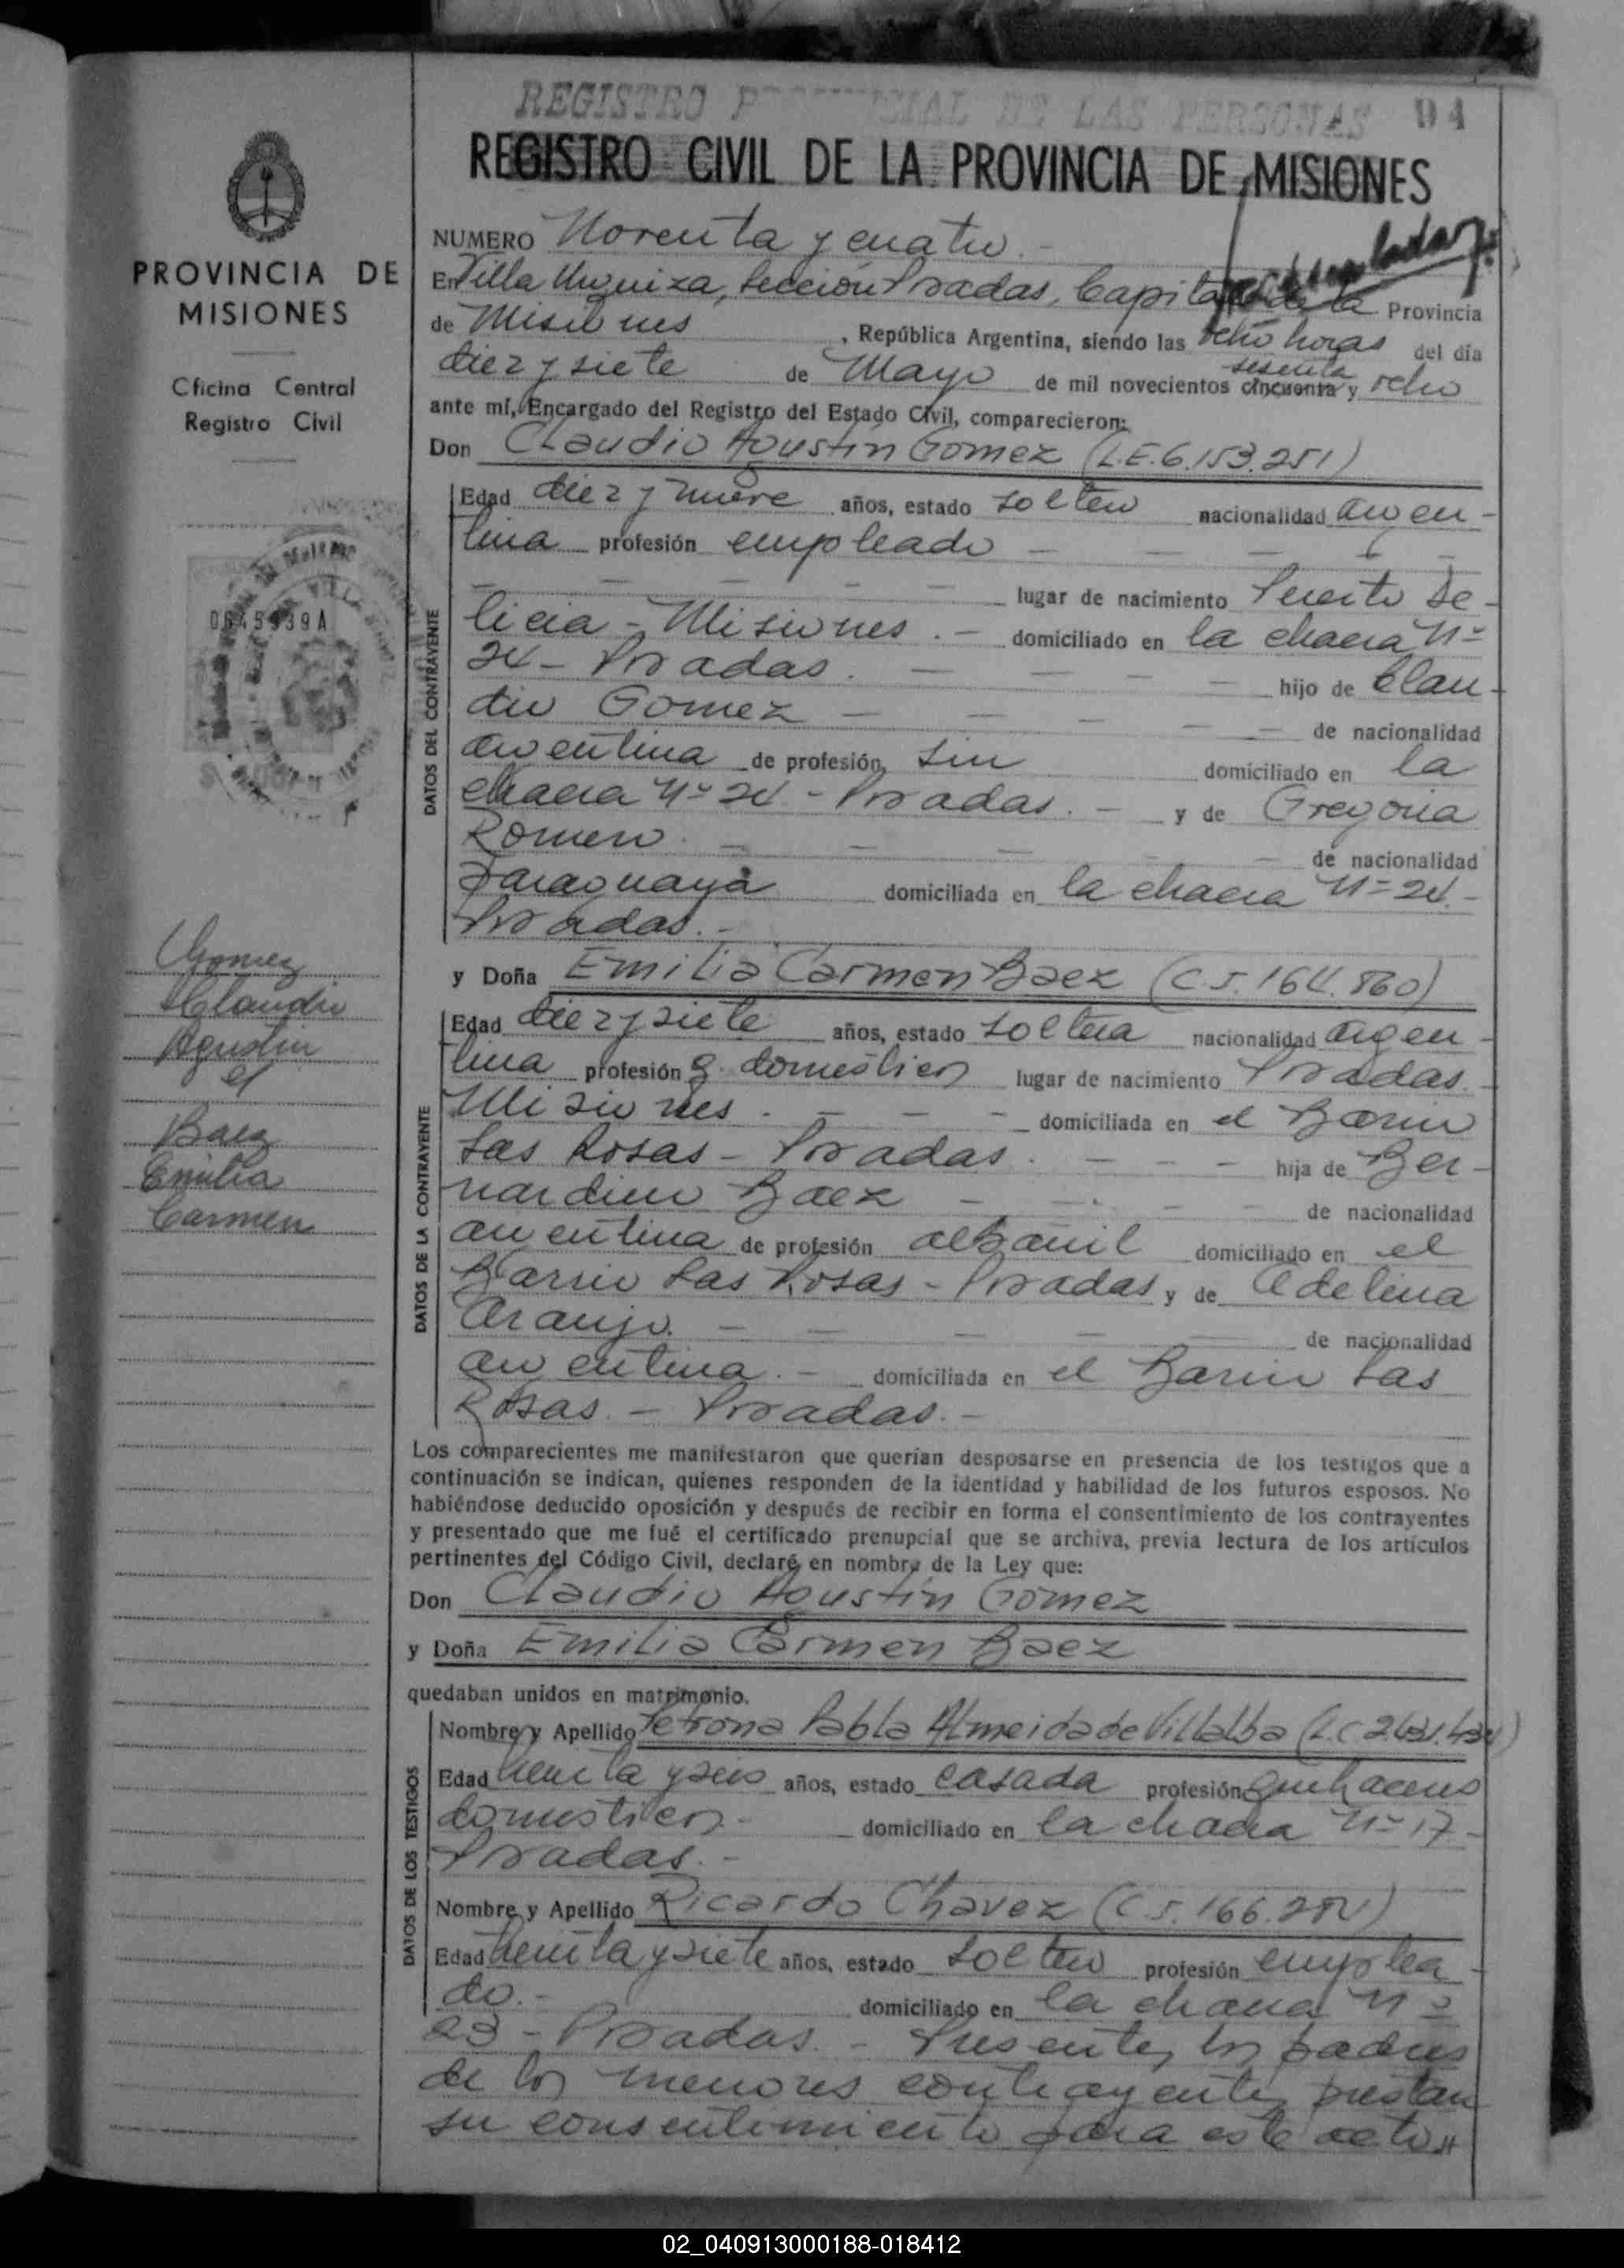 REGISTRO PROVINCIAL DE LAS PERSONAS 94
REGISTRO CIVIL DE LA PROVINCIA DE MISIONES
PROVINCIA DE
MISIONES
Oficina Central
Registro Civil
0845939A
Gomez
Claudio
Agustin
y
Baez
Emilia
Carmen
NUMERO Noventa y cuatro.-
En Villa Urquiza, Sección Posadas, Capital de la Provincia
de Misiones, República Argentina, siendo las ocho horas del día
diez y siete de Mayo de mil novecientos cincuenta sesenta y ocho
ante mí, Encargado del Registro del Estado Civil, comparecieron:
Don Claudio Agustín Gomez (L.E. 6.153.251)
DATOS DEL CONTRAYENTE
Edad diez y nueve años, estado soltero nacionalidad argen-
tina profesión empleado - - - -
- - - - - - lugar de nacimiento Puerto De-
licia - Misiones.- domiciliado en la chacra Nº
24 - Posadas. - - - - hijo de Clau-
dio Gomez - - - - - - de nacionalidad
argentina de profesión sin domiciliado en la
chacra Nº 24 - Posadas.- y de Gregoria
Romero. - - - - - de nacionalidad
Paraguaya domiciliada en la chacra Nº 24.-
Posadas.-
y Doña Emilia Carmen Baez (C.I. 164.860)
DATOS DE LA CONTRAYENTE
Edad diez y siete años, estado soltera nacionalidad argen-
tina profesión q. domésticos lugar de nacimiento Posadas.-
Misiones. - - - domiciliada en el Barrio
Las Rosas - Posadas. - - - hija de Ber-
nardino Baez - - - - de nacionalidad
argentina de profesión albañil domiciliado en el
Barrio Las Rosas - Posadas y de Adelina
Araujo. - - - - - de nacionalidad
argentina.- domiciliada en el Barrio Las
Rosas. - Posadas.-
Los comparecientes me manifestaron que querían desposarse en presencia de los testigos que a
continuación se indican, quienes responden de la identidad y habilidad de los futuros esposos. No
habiéndose deducido oposición y después de recibir en forma el consentimiento de los contrayentes
y presentado que me fué el certificado prenupcial que se archiva, previa lectura de los artículos
pertinentes del Código Civil, declaré en nombre de la Ley que:
Don Claudio Agustín Gomez
y Doña Emilia Carmen Baez
quedaban unidos en matrimonio.
DATOS DE LOS TESTIGOS
Nombre y Apellido Petrona Pabla Almeida de Villalba (L.C.
Edad treinta y seis años, estado casada profesión quehaceres
domésticos.- domiciliado en la chacra Nº 17-
Posadas.-
Nombre y Apellido Ricardo Chavez (C.I.
Edad treinta y siete años, estado soltero profesión emplea-
do.- domiciliado en la chacra Nº
23 - Posadas. - Presentes, los padres
de los menores contrayentes, prestan
su consentimiento para este acto.//
02_040913000188-018412